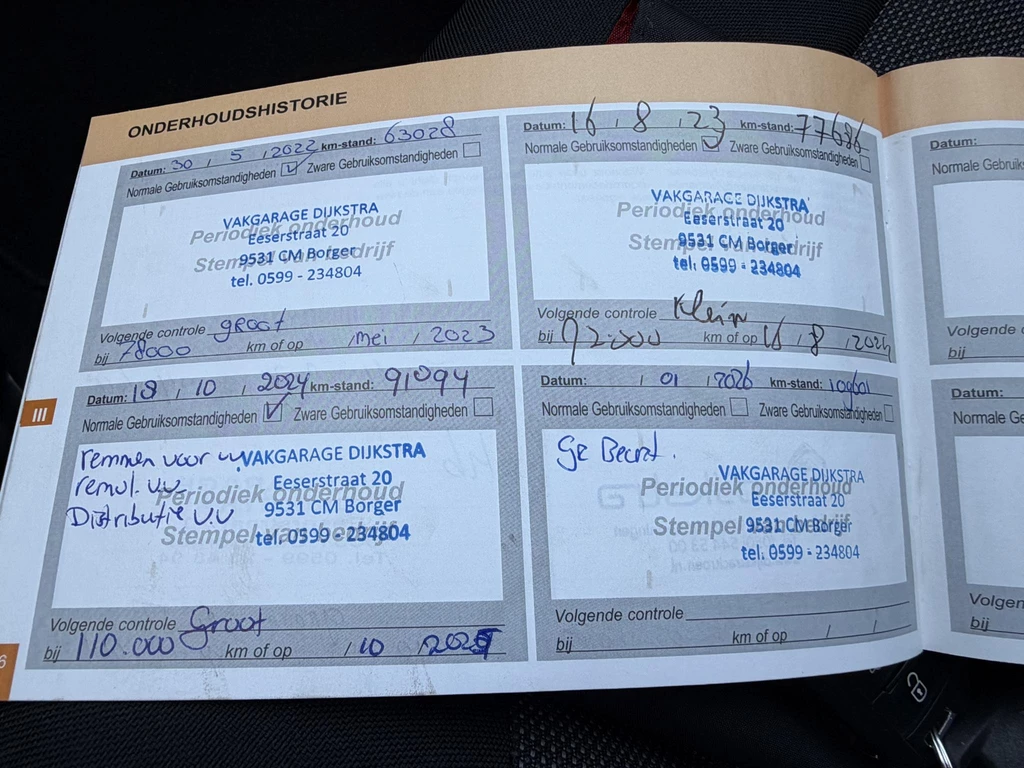 ONDERHOUDSHISTORIE
Datum: 30 / 5 / 2022 km-stand: 63028
Normale Gebruiksomstandigheden Zware Gebruiksomstandigheden
VAKGARAGE DIJKSTRA
Periodiek onderhoud
Eeserstraat 20
Stempel van bedrijf
9531 CM Borger
tel. 0599 - 234804
Volgende controle groot
bij 78000 km of op / mei / 2023
Datum: 16 / 8 / 23 km-stand: 77686
Normale Gebruiksomstandigheden Zware Gebruiksomstandigheden
VAKGARAGE DIJKSTRA
Periodiek onderhoud
Eeserstraat 20
Stempel van bedrijf
9531 CM Borger
tel. 0599 - 234804
Volgende controle Klein
bij 92.000 km of op 16 / 8 / 2024
Datum: 18 / 10 / 2024 km-stand: 91094
Normale Gebruiksomstandigheden Zware Gebruiksomstandigheden
remmen voor vv
VAKGARAGE DIJKSTRA
remvl. vv.
Eeserstraat 20
Periodiek onderhoud
Distributie v.v
9531 CM Borger
Stempel van bedrijf
tel. 0599 - 234804
Volgende controle Groot
bij 110.000 km of op / 10 / 2025
Datum: / 01 / 2026 km-stand:
Normale Gebruiksomstandigheden Zware Gebruiksomstandigheden
VAKGARAGE DIJKSTRA
Periodiek onderhoud
Eeserstraat 20
Stempel van bedrijf
9531 CM Borger
tel. 0599 - 234804
Volgende controle
bij km of op / /
III
6
Datum:
Normale G
Volgende
bij
Datum:
Normale Ge
Volgen
bij